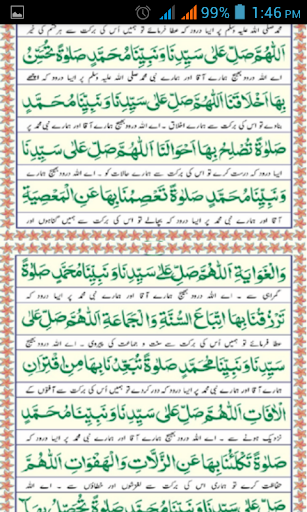 99% 1:46 PM
محمد صلی اللہ علیہ وسلم پر ایسا درود کہ عطا فرمائے تو ہمیں اُس کی برکت سے ہر قسم کی خیر
اَللّٰهُمَّ صَلِّ عَلٰى سَيِّدِنَا وَنَبِيِّنَا مُحَمَّدٍ صَلٰوةً تُحَسِّنُ
اے اللہ درود بھیج ہمارے آقا اور ہمارے نبی محمد صلی اللہ علیہ وسلم پر ایسا درود کہ
بِهَا اَخْلَاقَنَا اَللّٰهُمَّ صَلِّ عَلٰى سَيِّدِنَا وَنَبِيِّنَا مُحَمَّدٍ
بنادے تو اس کی برکت سے ہمارے اخلاق ۔ اے اللہ درود بھیج ہمارے آقا اور ہمارے نبی محمد پر
صَلٰوةً تُصْلِحُ بِهَا اَحْوَالَنَا اَللّٰهُمَّ صَلِّ عَلٰى سَيِّدِنَا
ایسا درود کہ درست کردے تو اس کی برکت سے ہمارے حالات کو ۔ اے اللہ درود بھیج ہمارے آقا
وَنَبِيِّنَا مُحَمَّدٍ صَلٰوةً تَعْصِمُنَا بِهَا عَنِ الْمَعْصِيَةِ
اور ہمارے نبی محمد پر ایسا درود کہ بچالے تو اس کی برکت سے ہمیں گناہوں اور
وَالْغَوَايَةِ اَللّٰهُمَّ صَلِّ عَلٰى سَيِّدِنَا وَنَبِيِّنَا مُحَمَّدٍ صَلٰوةً
گمراہی سے ۔ اے اللہ درود بھیج ہمارے آقا اور ہمارے نبی محمد پر ایسا درود کہ
تَرْزُقُنَا بِهَا اتِّبَاعَ السُّنَّةِ وَالْجَمَاعَةِ اَللّٰهُمَّ صَلِّ عَلٰى
عطا فرمائے تو ہمیں اس کی برکت سے سنت و جماعت کی پیروی ۔ اے اللہ درود بھیج
سَيِّدِنَا وَنَبِيِّنَا مُحَمَّدٍ صَلٰوةً تُبَعِّدُنَا بِهَا مِنِ قْتِرَانِ
ہمارے آقا اور ہمارے نبی محمد پر ایسا درود کہ دور کردے تو ہمیں اس کی برکت سے آفتوں کے
الْاٰفَاتِ اَللّٰهُمَّ صَلِّ عَلٰى سَيِّدِنَا وَنَبِيِّنَا مُحَمَّدٍ
نزدیک ہونے سے ۔ اے اللہ درود بھیج ہمارے آقا اور ہمارے نبی محمد پر ایسا درود کہ
صَلٰوةً تَكْلَؤُنَا بِهَا عَنِ الزَّلَّاتِ وَالْهَفَوَاتِ اَللّٰهُمَّ
حفاظت کرے تو ہماری اس کی برکت سے لغزشوں اور خطاؤں سے ۔ اے اللہ
صَلِّ عَلٰى سَيِّدِنَا وَنَبِيِّنَا مُحَمَّدٍ صَلٰوةً